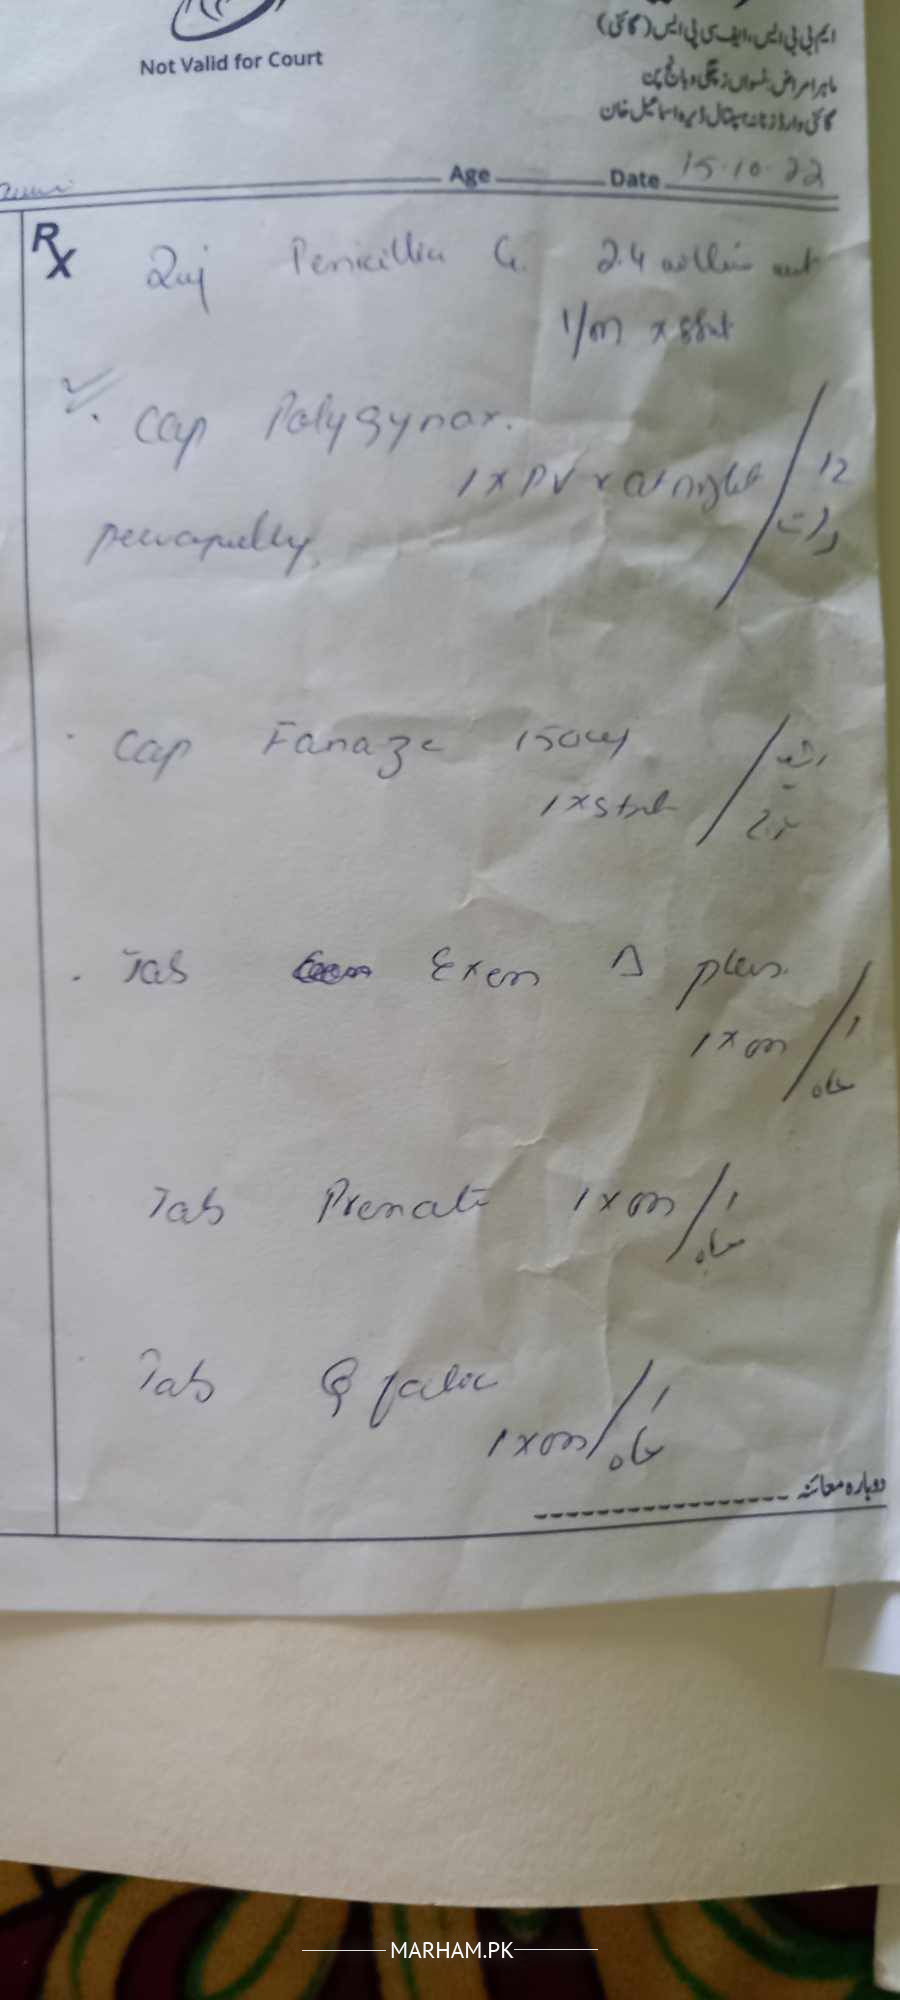 Not Valid for Court
ایم بی بی ایس، ایف سی پی ایس (گائنی)
ماہر امراض نسواں زچگی و بانجھ پن
گائنی وارڈ زنانہ ہسپتال ڈیرہ اسماعیل خان
Age Date 15.10.22
Rx
Inj Penicillin G. 2.4 million unit
1/m x stat
Cap Polygynax.
1 x PV x at night / 12
رات
Cap Fanaze 150mg
1 x stat
Tab Exon D plus
1 x on / 1
ماہ
Tab Prenate 1 x on / 1
ماہ
Tab Q folic
1 x on / 1
ماہ
دوبارہ معائنہ
MARHAM.PK